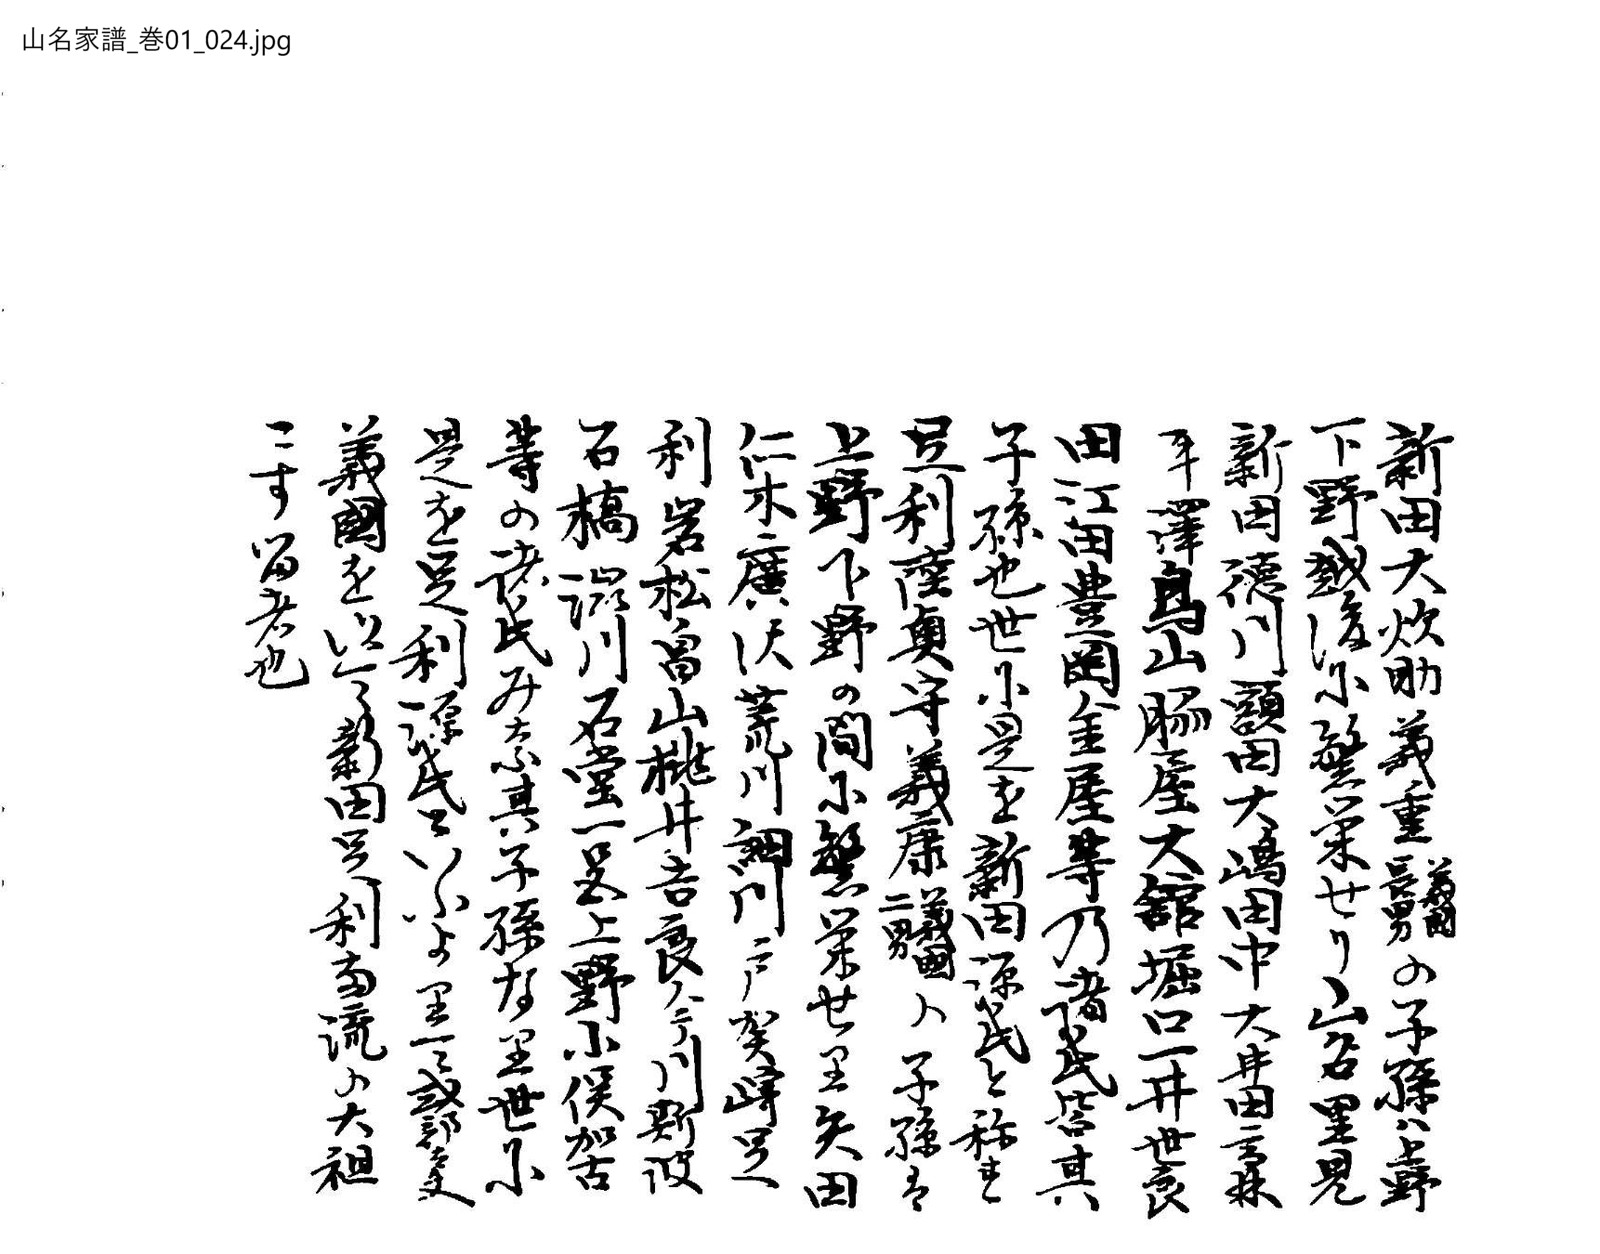 山名家譜_巻01_024.jpg
新田大炊助義重義國長男の子孫ハ上野
下野越後尓繁栄せり山名里見
新田徳川額田大嶋田中大井田
牛澤鳥山脇屋大舘堀口一井世良
田江田豊岡金屋等乃諸氏皆其
子孫也世尓是を新田源氏と称す
足利陸奥守義康義國二男ノ子孫は
上野下野の間尓繁栄せ里矢田
仁木廣沢荒川細川戸賀崎足
利岩松畠山桃井吉良今川斯波
石橋渋川石堂一色上野小俣加古
等の諸氏み奈其子孫な里世尓
是を足利源氏といふよ里
義國を以て新田足利両流の大祖
とす留者也